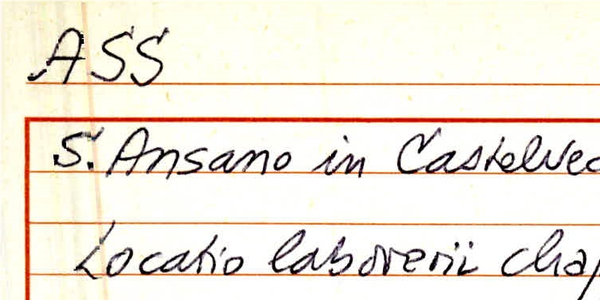 ASS
S. Ansano in Castelvec
Locatio laborerii chap